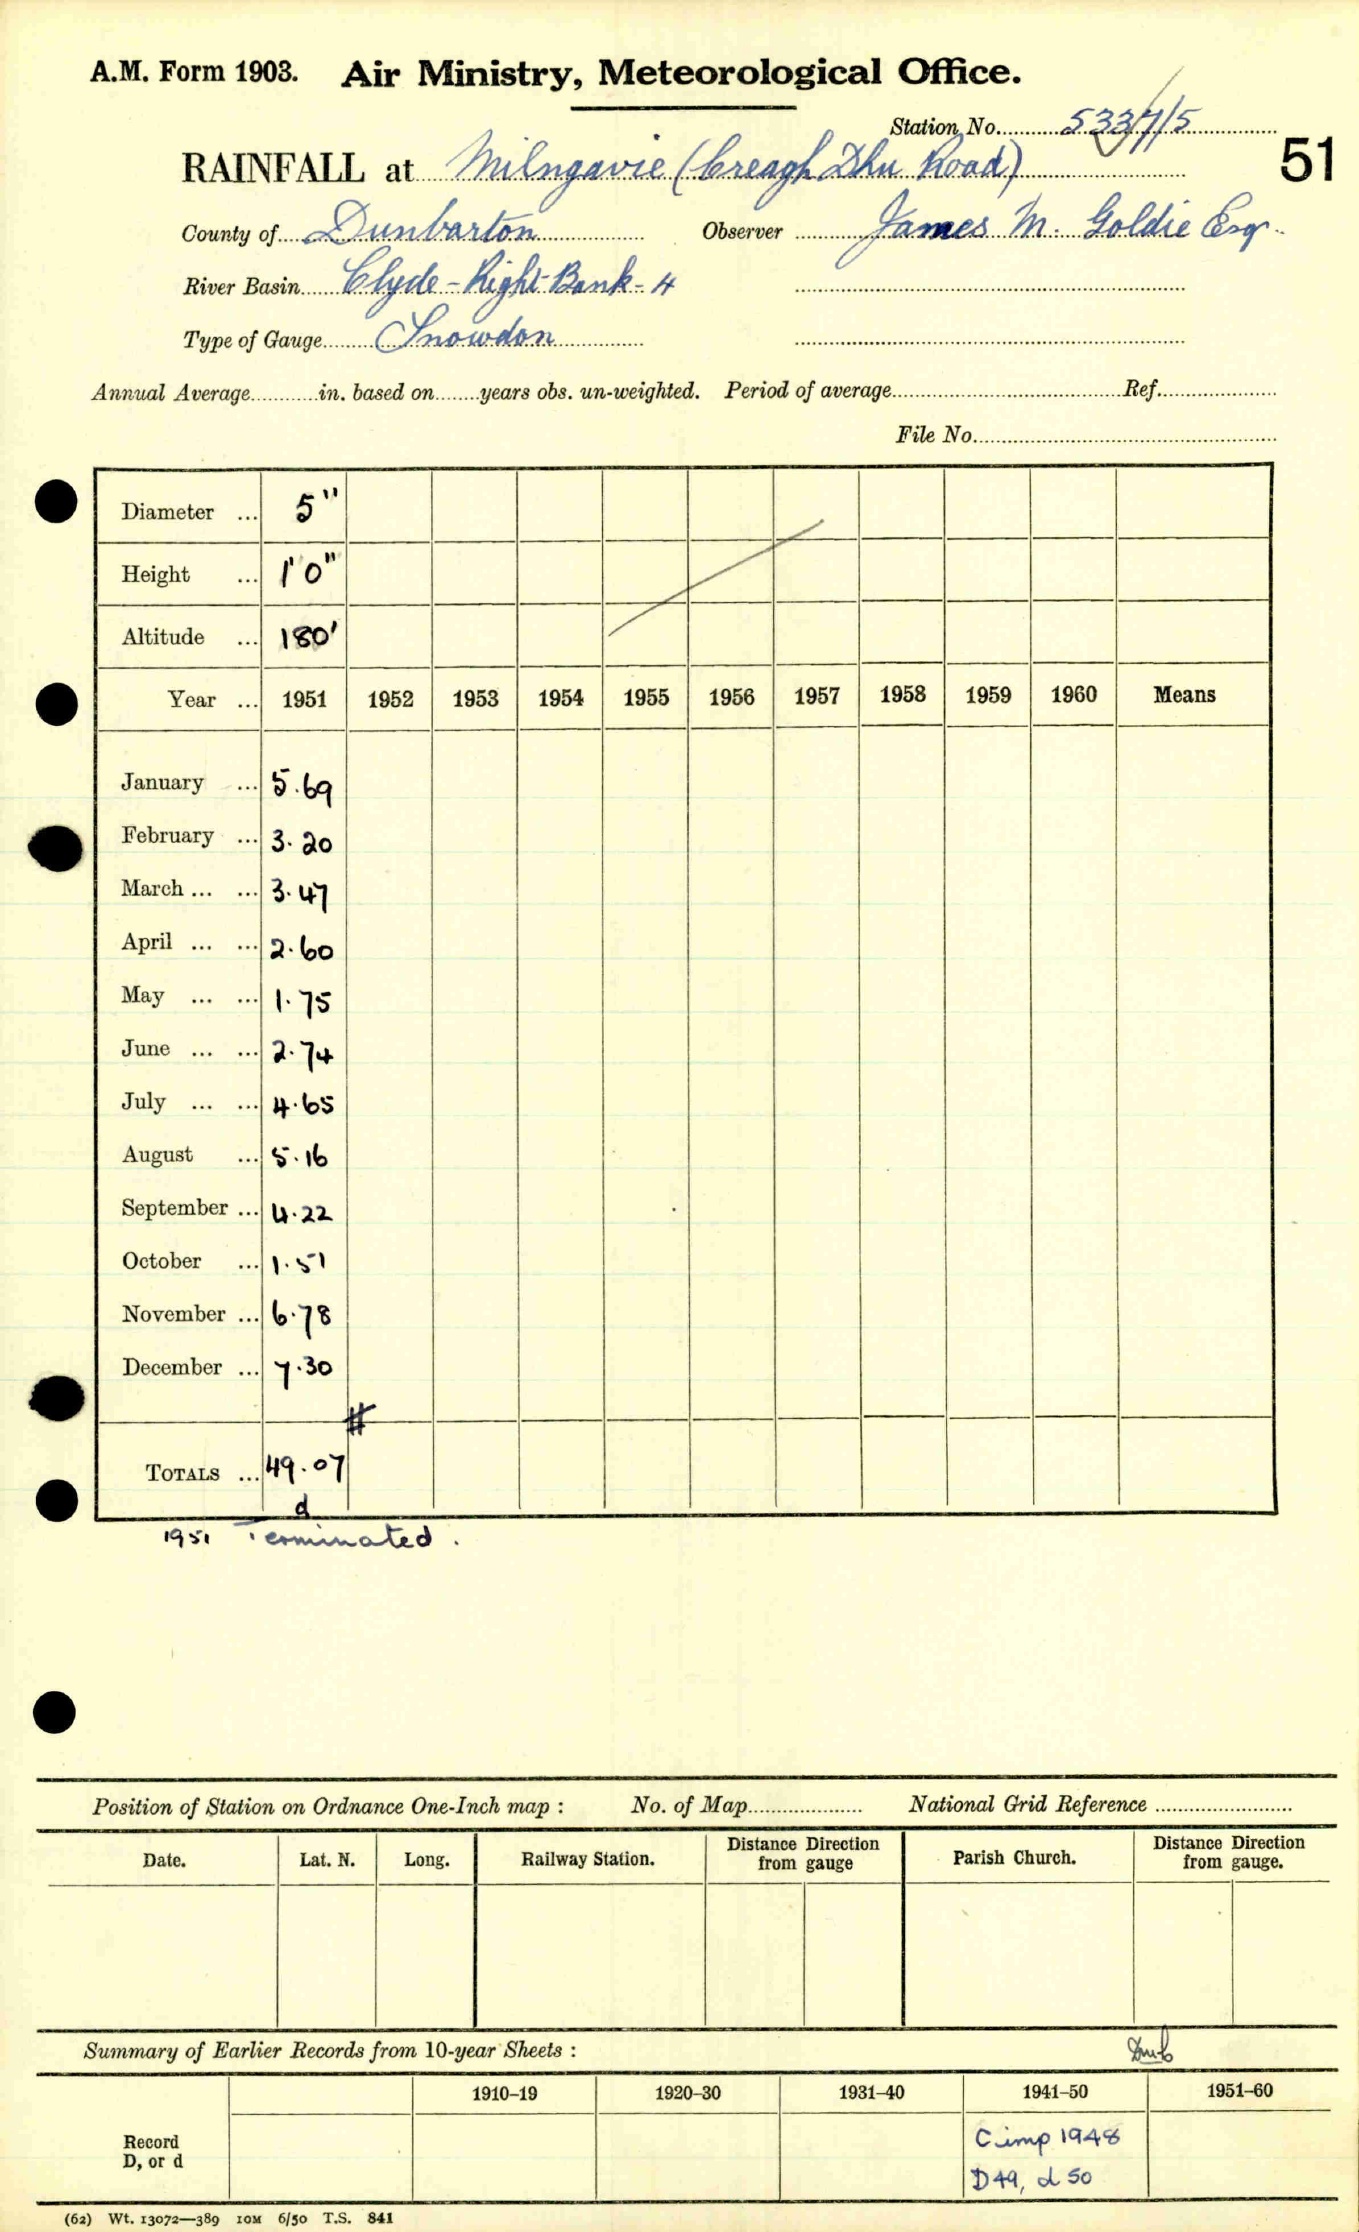 A.M. Form 1903. Air Ministry, Meteorological Office.
Station No. 5337/5
RAINFALL at Milngavie (Creagh Dhu Road) 51
County of Dunbarton Observer James M. Goldie Esq.
River Basin Clyde - Right Bank - 4
Type of Gauge Snowdon
Annual Average in. based on years obs. un-weighted. Period of average Ref.
File No.
Diameter ... 5"
Height ... 1'0"
Altitude ... 180'
Year ... 1951 1952 1953 1954 1955 1956 1957 1958 1959 1960 Means
January ... 5.69
February ... 3.20
March ... ... 3.47
April ... ... 2.60
May ... ... 1.75
June ... ... 2.74
July ... ... 4.65
August ... 5.16
September ... 4.22
October ... 1.51
November ... 6.78
December ... 7.30
#
TOTALS ... 49.07
d
1951 Terminated.
Position of Station on Ordnance One-Inch map : No. of Map National Grid Reference
Date. Lat. N. Long. Railway Station. Distance from gauge Direction Parish Church. Distance from gauge. Direction
Summary of Earlier Records from 10-year Sheets :
1910-19 1920-30 1931-40 1941-50 1951-60
Record D, or d C imp 1948
D49, d 50
(62) Wt. 13072—389 10M 6/50 T.S. 841